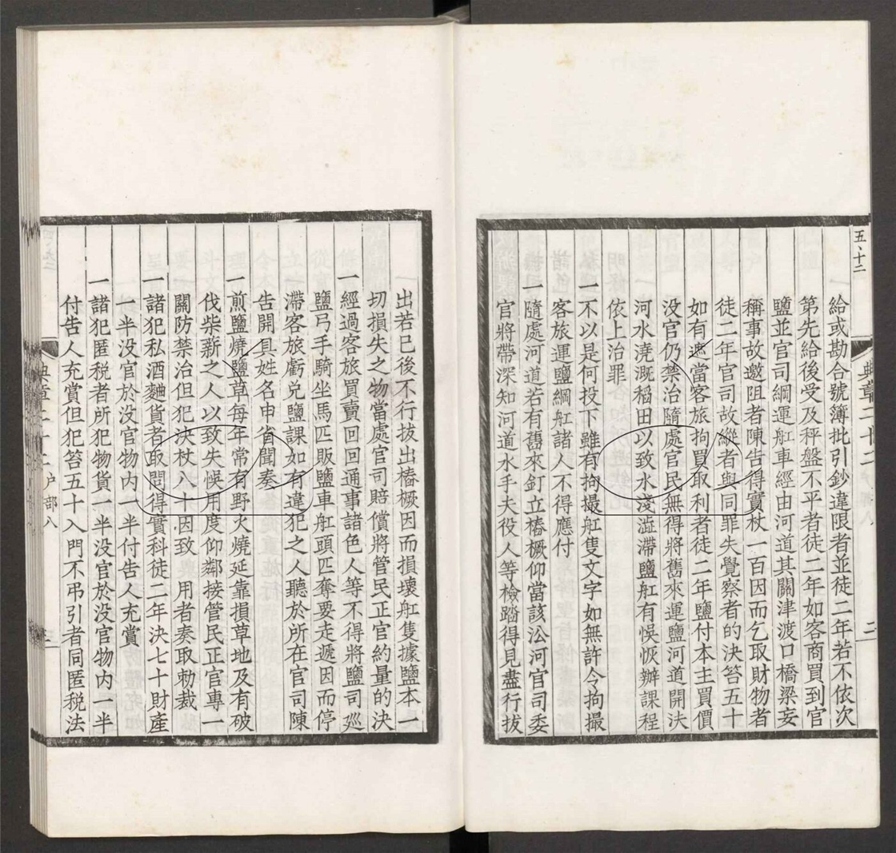 五、十二
給或勘合號簿批引鈔違限者並徒二年若不依次
第先給後受及秤盤不平者徒二年如客商買到官
鹽並官司綱運舡車經由河道其關津渡口橋梁妄
稱事故邀阻者陳告得實杖一百因而乞取財物者
徒二年官司故縱者與同罪失覺察者的決笞五十
如有遮當客旅拘買取利者徒二年鹽付本主買價
没官仍禁治隨處官民無得將舊來運鹽河道開決
河水澆溉稻田以致水淺澁滯鹽舡有悞恢辦課程
依上治罪
一不以是何投下雖有拘撮舡隻文字如無許令拘撮
客旅運鹽綱舡諸人不得應付
一隨處河道若有舊來釘立樁橛仰當該沿河官司委
官將帶深知河道水手夫役人等檢踏得見盡行拔
典章二十二 户部八
出若已後不行拔出樁橛因而損壞舡隻據鹽本一
切損失之物當處官司賠償將管民正官約量的決
一經過客旅買賣回回通事諸色人等不得將鹽司廵
鹽弓手騎坐馬匹販鹽車舡頭匹奪要走遞因而停
滯客旅虧兑鹽課如有違犯之人聽於所在官司陳
告開具姓名申省聞奏
一煎鹽燒鹽草每年常有野火燒延靠損草地及有破
伐柴薪之人以致失悞用度仰鄰接管民正官專一
關防禁治但犯決杖八十因致 用者奏取勑裁
一諸犯私酒麯貨者取問得實科徒二年決七十財產
一半没官於没官物内一半付告人充賞
一諸犯匿税者所犯物貨一半没官於没官物内一半
付告人充賞但犯笞五十入門不吊引者同匿税法